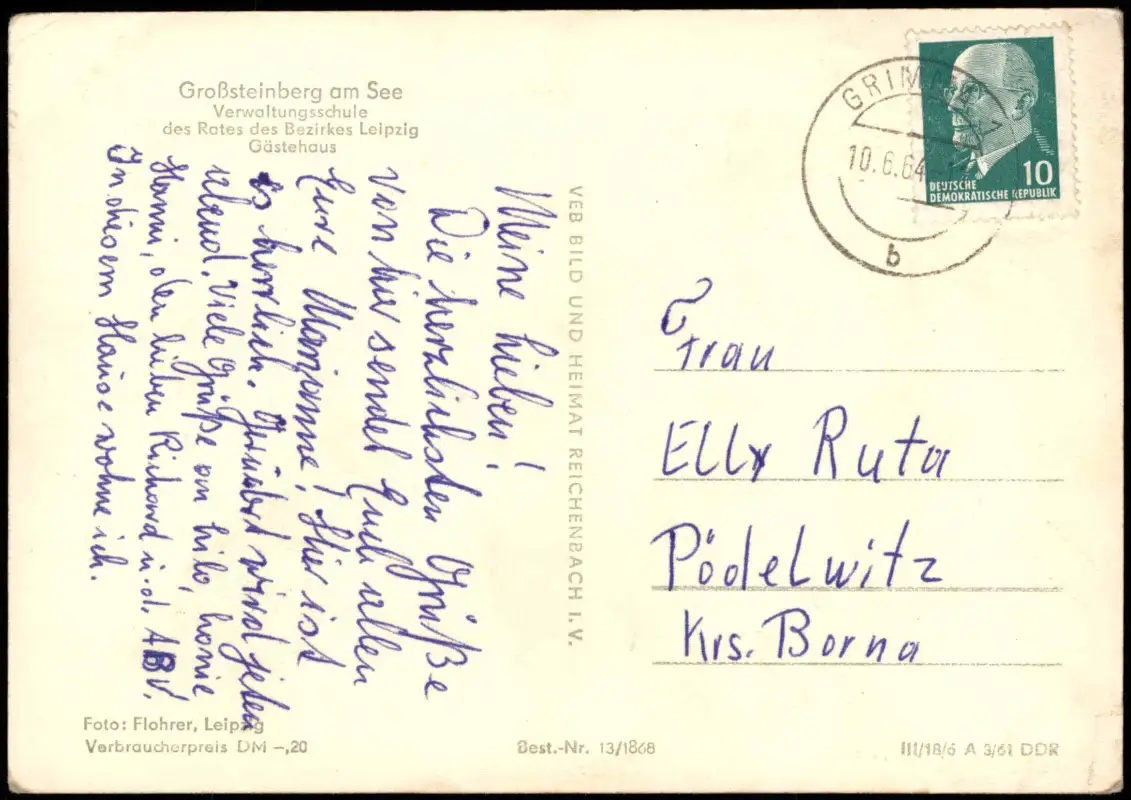 Großsteinberg am See
Verwaltungsschule
des Rates des Bezirkes Leipzig
Gästehaus
Meine Lieben!
Die herzlichsten Grüße
von hier sendet Euch allen
Eure Marianne! Hier ist
es herrlich. Geübt wird jeden
Abend. Viele Grüße an Lilo,
Hanni, den lieben Richard u. d. ABV.
In diesem Hause wohne ich.
VEB BILD UND HEIMAT REICHENBACH I. V.
GRIMMA 1
10.6.64
b
10
DEUTSCHE
DEMOKRATISCHE REPUBLIK
Frau
Elly Ruta
Pödelwitz
Krs. Borna
Foto: Flohrer, Leipzig
Verbraucherpreis DM –,20
Best.-Nr. 13/1868
III/18/6 A 3/61 DDR